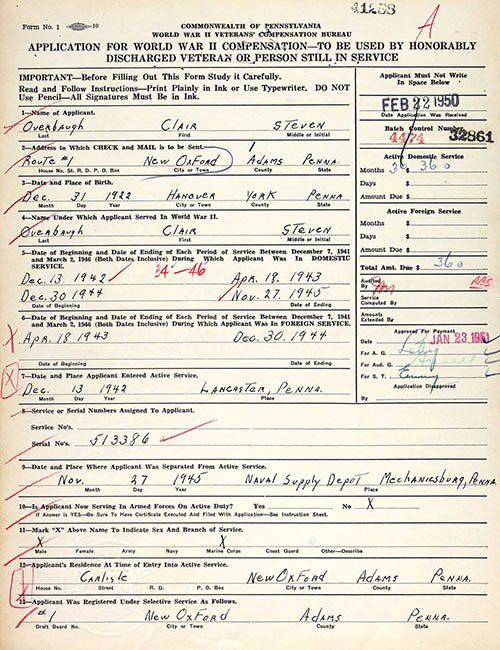 41288
A
Form No. 1 10
COMMONWEALTH OF PENNSYLVANIA
WORLD WAR II VETERANS' COMPENSATION BUREAU
APPLICATION FOR WORLD WAR II COMPENSATION—TO BE USED BY HONORABLY
DISCHARGED VETERAN OR PERSON STILL IN SERVICE
IMPORTANT—Before Filling Out This Form Study it Carefully.
Read and Follow Instructions—Print Plainly in Ink or Use Typewriter. DO NOT
Use Pencil—All Signatures Must be in Ink.
1—Name of Applicant.
Overbaugh Clair Steven
Last First Middle or Initial
2—Address to Which CHECK and MAIL is to be Sent.
Route #1 New Oxford Adams Penna.
House No. St. R. D. P. O. Box City or Town County State
3—Date and Place of Birth.
Dec. 31 1922 Hanover York Penna
Month Day Year City or Town County State
4—Name Under Which Applicant Served In World War II.
Overbaugh Clair Steven
Last First Middle or Initial
5—Date of Beginning and Date of Ending of Each Period of Service Between December 7, 1941
and March 2, 1946 (Both Dates Inclusive) During Which Applicant Was In DOMESTIC
SERVICE.
34-46
Dec. 13 1942 Apr. 18 1943
Dec. 30 1944 Nov. 27 1945
Date of Beginning Date of Ending
6—Date of Beginning and Date of Ending of Each Period of Service Between December 7, 1941
and March 2, 1946 (Both Dates Inclusive) During Which Applicant Was In FOREIGN SERVICE.
X Apr. 18 1943 Dec. 30 1944
Date of Beginning Date of Ending
X
7—Date and Place Applicant Entered Active Service.
Dec. 13 1942 Lancaster, Penna.
Month Day Year Place
Applicant Must Not Write
In Space Below
FEB 22 1950
Date Application Was Received
Batch Control Number
4474 32861
Active Domestic Service
Months 36 360
Days
Amount Due $
Active Foreign Service
Months
Days
Amount Due $
Total Amt. Due $ 360
Audited By RBS
Service
Computed By
Amounts
Extended By
Approved For Payment
Date JAN 23 1951
For A. G.
For Aud. G.
For S. T.
Application Disapproved
By
8—Service or Serial Numbers Assigned To Applicant.
Service No's.
Serial No's. 513386
9—Date and Place Where Applicant Was Separated From Active Service.
Nov. 27 1945 Naval Supply Depot Mechanicsburg, Penna
Month Day Year Place
10—Is Applicant Now Serving In Armed Forces On Active Duty? Yes No X
If Answer is YES—Be Sure To Have Certificate Executed And Filed With Application—See Instruction Sheet.
11—Mark "X" Above Name To Indicate Sex and Branch of Service.
X X
Male Female Army Navy Marine Corps Coast Guard Other—Describe
12—Applicant's Residence At Time of Entry Into Active Service.
Carlisle New Oxford Adams Penna.
House No. Street R. D. P. O. Box City or Town County State
13—Applicant Was Registered Under Selective Service As Follows.
#1 New Oxford Adams Penna.
Draft Board No. City or Town County State